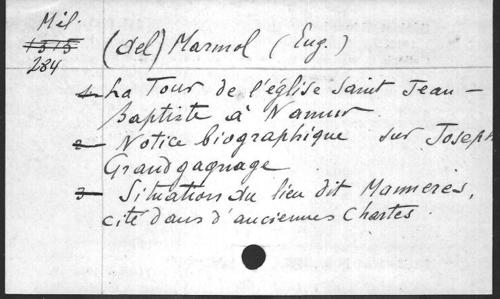 Mél.
1515
284
(del) Marmol (Eug.)
1 La Tour de l'église Saint Jean-
Baptiste à Namur
2 Notice biographique sur Joseph
Grandgagnage
3 Situation du lieu dit Manneres,
cité dans d'anciennes Chartes.